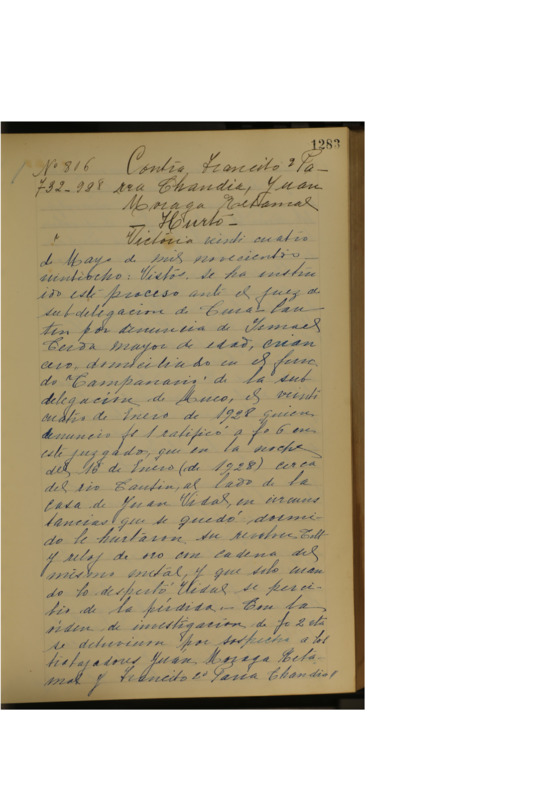 1283
Nº 816 Contra Francisco 2º Ta-
732-928 pia Chandia, Juan
Moraga Retamal
- Hurto -
Victoria veinti cuatro
de Mayo de mil novecientos
veintiocho: Vistos, se ha instru
ido este proceso ante el juez de
subdelegacion de Cura-Cau-
tin por denuncia de Ismael
Cerda mayor de edad, crian
cero, domiciliado en el fun-
do "Campanario" de la sub
delegación de Muco, el veinti
cuatro de Enero de 1928 quien
denuncio fs 1 ratificó a fs 6 en
este juzgado, que en la noche
del 16 de Enero (de 1928) cerca
del rio Cautin, al lado de la
casa de Juan Vidal, en circuns
tancias que se quedó dormi-
do le hurtaron su revolver Colt
y reloj de oro con cadena del
mismo metal, y que solo cuan
do lo despertó Vidal se perci-
bio de la pérdida.- Con la
órden de investigacion de fs 2 vta
se detuvieron por sospecha a los
trabajadores Juan Moraga Reta-
mal y Francisco 2º Tapia Chandia